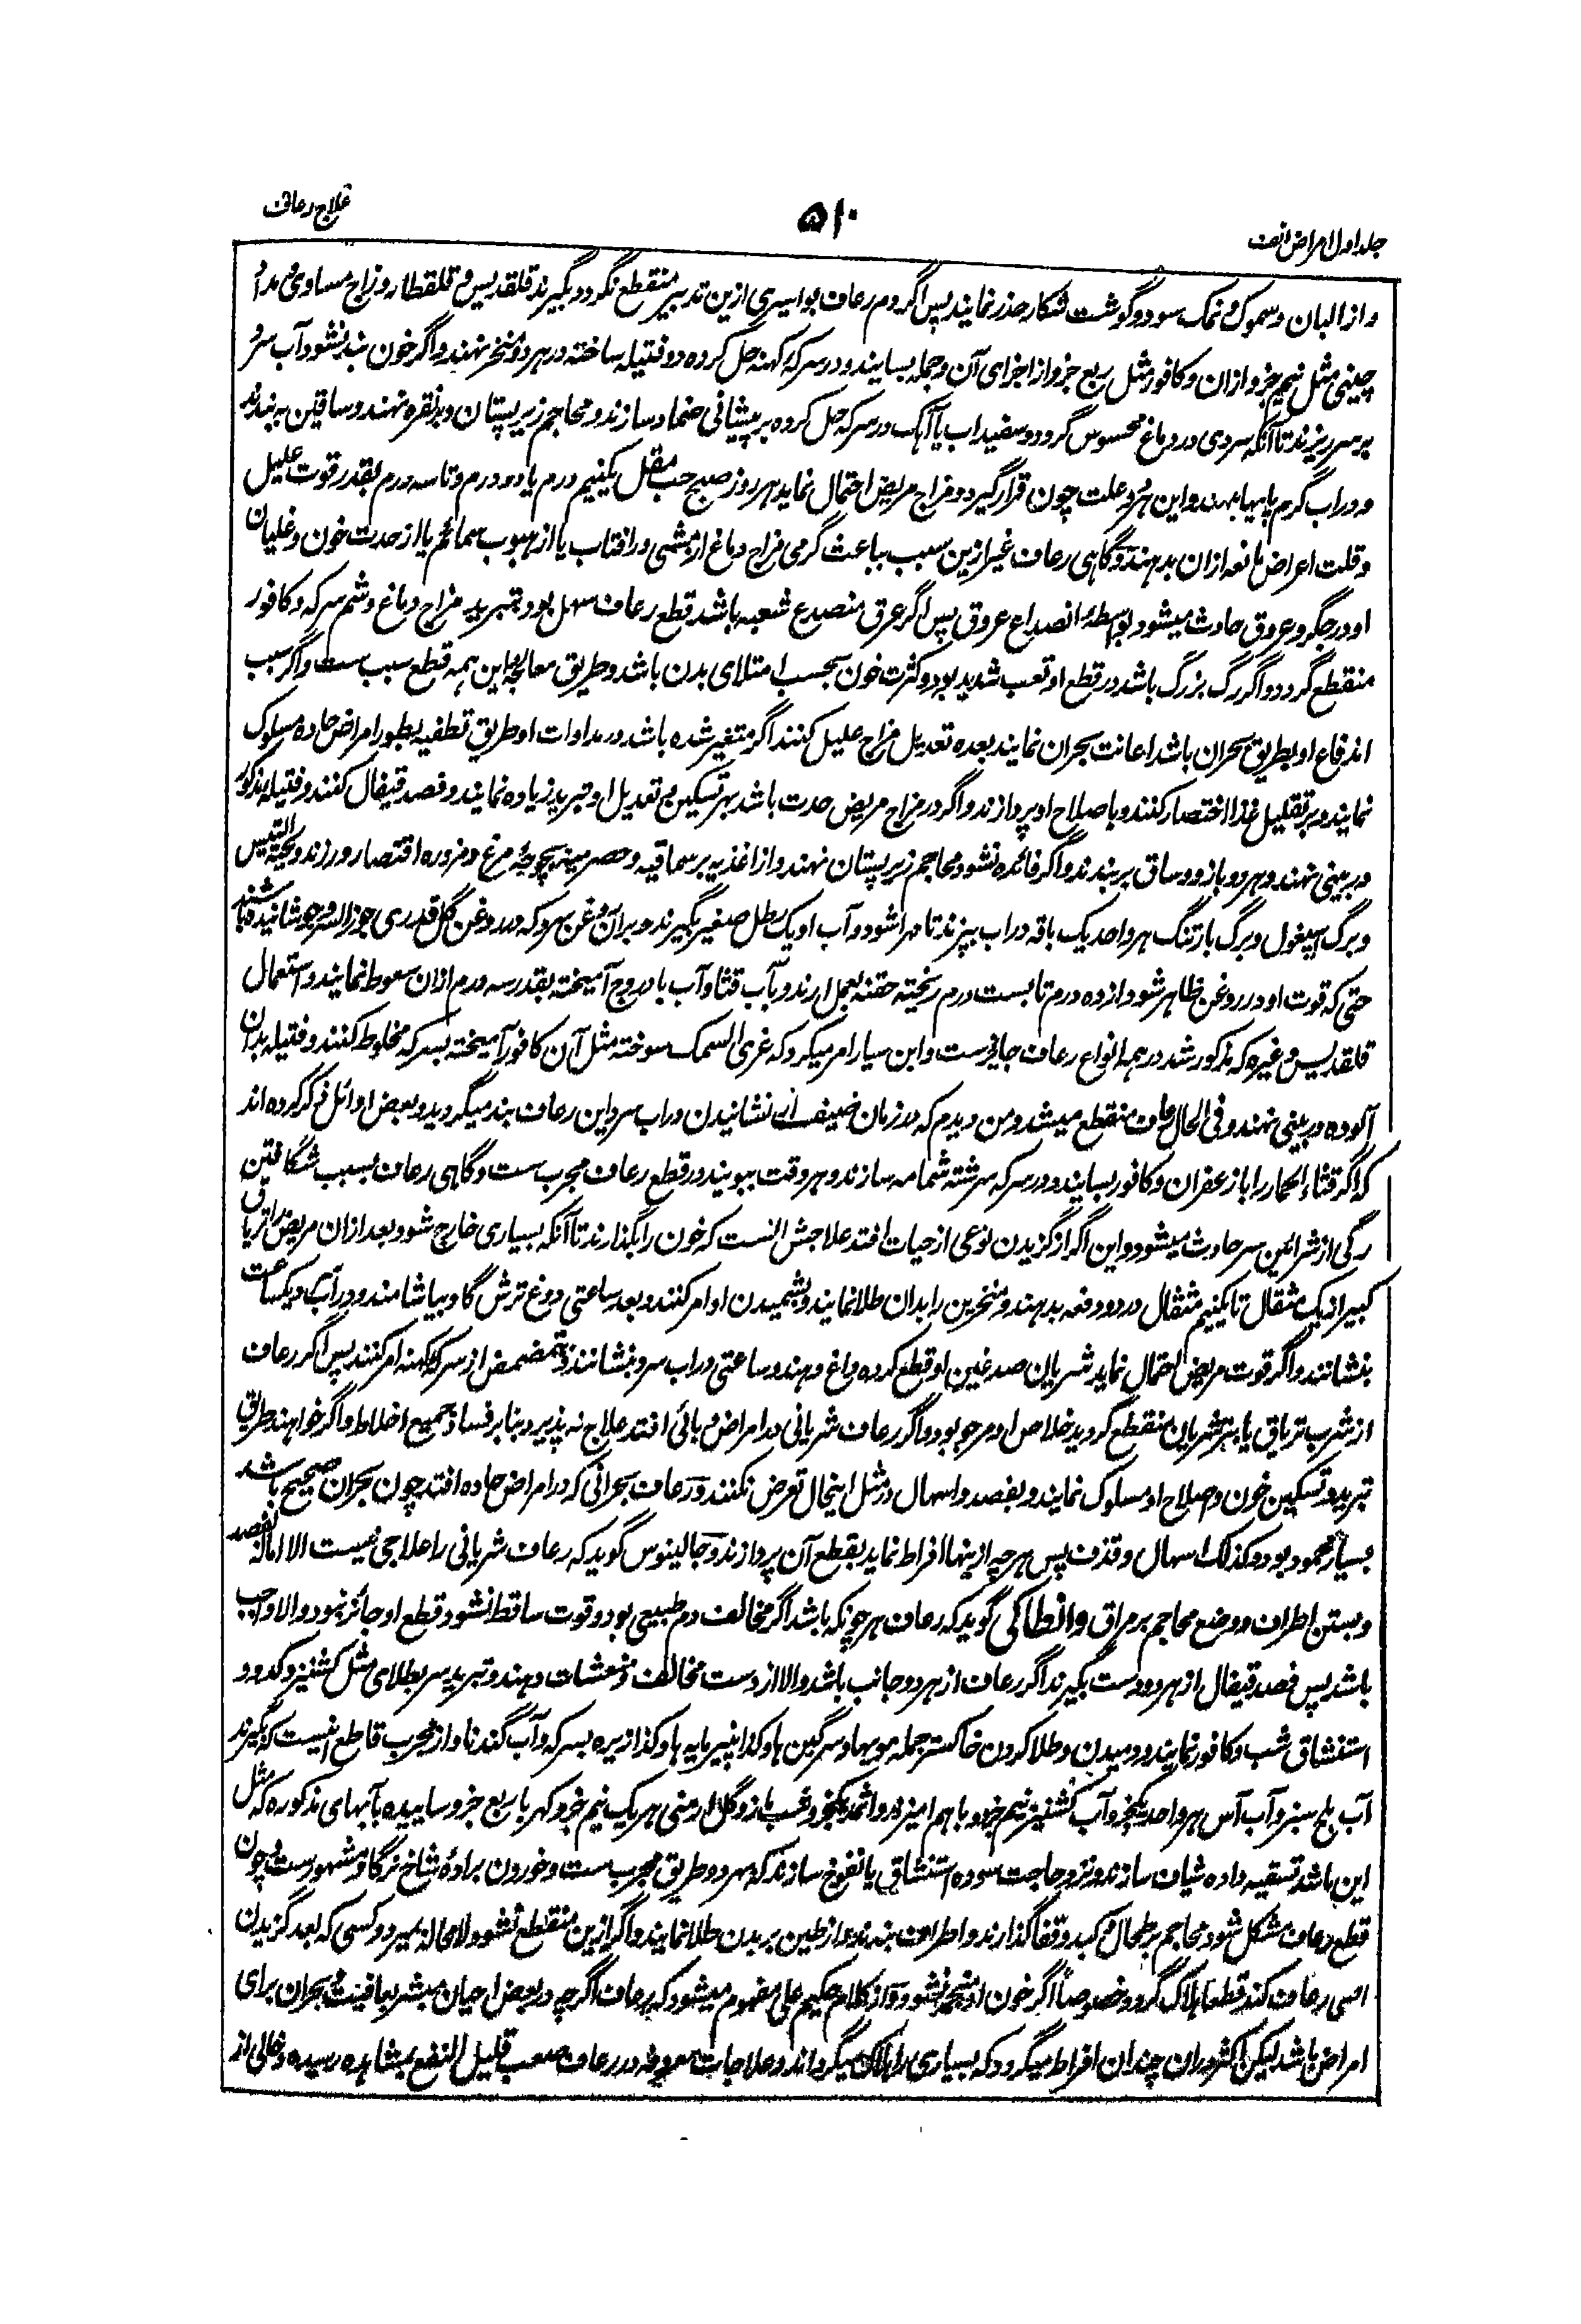 جلد اول امراض انف
۵۱۰
علاج رعاف
و از البان و سموک و نمک سود و گوشت شکار حذر نمایند پس اگر دم رعاف بواسیری ازین تدبیر منقطع نگردد بگیرند قلقدیس و قلقطار و زاج مساوی و مداد
چینی مثل نیم جزو ازان و کافور مثل ربع جزو از اجزای آن و جمله بسایند و در سرکهٔ کهنه حل کرده دو فتیله ساخته در هر دو منخر نهند و اگر خون بند نشود آب سرد
بر سر ریزند تا آنکه سردی در دماغ محسوس گردد و سفیداب یا آهک در سرکه حل کرده بر پیشانی ضماد سازند و محاجم زیر پستان و بر نقره نهند و ساقین به بندند
و در اب گرم پایها نهند و این هر دو علت چون قرار گیرد و مزاج مریض احتمال نماید هر روز صبح حب مقل یکنیم درم یا دو درم و تا سه درم بقدر قوت علیل
و قلت اعراض مانعه ازان بدهند و گاهی رعاف غیر ازین سبب بباعث گرمی مزاج دماغ از مشی در افتاب یا از هبوب سمائم یا از حدت خون و غلیان
او در جگر و عروق حادث میشود بواسطهٔ انصداع عروق پس اگر عرق منصدع شعبه باشد قطع رعاف سهل بود و بتبرید مزاج دماغ و شم سرکه و کافور
منقطع گردد و اگر رگ بزرگ باشد در قطع او تعب شدید بود و کثرت خون بحسب امتلای بدن باشد و طریق معالجه این همه قطع سبب ست و اگر سبب
اندفاع او بطریق بحران باشد اعانت بحران نمایند بعده تعدیل مزاج علیل کنند اگر متغیر شده باشد در مداوات او طریق تطفیه بطور امراض حاده مسلوک
نمایند و بر تقلیل غذا اختصار کنند و باصلاح او پردازند و اگر در مزاج مریض حدت باشد بهر تسکین و تعدیل او تبرید زیاده نمایند و فصد قیفال کنند و فتیله مذکور
در بینی نهند و هر دو بازو و ساق بر بندند و اگر فائده نشود محاجم زیر پستان نهند و از اغذیه بر سماقیه و حصرمیه بچوجهٔ مرغ و مزوره اقتصار ورزند و لحیة التیس
و برگ اسپغول و برگ بارتنگ هر واحد یک باقه در اب بپزند تا مهرا شود و آب او یک رطل صغیر بگیرند و بر آن روغن سرد که در روغن گل قدری جوز السرو جوشانیده باشند
حتی که قوت او در روغن ظاهر شود از ده درم تا بست درم ریخته حقنه بعمل ارند و بآب قثا و آب بادروج آمیخته بقدر سه درم ازان سعوط نمایند و استعمال
قلقدیس و غیره که مذکور شد در همه انواع رعاف جائزست و ابن سیار امر میکرد که غری السمک سوخته مثل آن کافور آمیخته بسرکه مخلوط کنند و فتیله بدان
آلوده در بینی نهند و فی الحال رعاف منقطع میشد و من دیدم که در زمان نشانیدن در اب سرد این رعاف بند میگردید و بعض اوائل ذکر کرده اند
که اگر قثاء الحمار را با زعفران و کافور بسایند و در سرکه سرشته شمامه سازند و هر وقت ببویند در قطع رعاف مجرب ست و گاهی رعاف بسبب شگافتن
رگی از شرائین سر حادث میشود و این اگر از گزیدن نوعی از حیات افتد علاجش انست که خون را بگذارند تا آنکه بسیاری خارج شود بعد ازان مریض را تریاق
کبیر از یک مثقال تا یکنیم مثقال در دو دفعه بدهند و منخرین را بدان طلا نمایند و بشمیدن او امر کنند و بعد ساعتی دوغ ترش گاو بیاشامند و در آب دیکساعت
بنشانند و اگر قوت مریض احتمال نماید شریان صدغین او قطع کرده داغ دهند و ساعتی در اب سرد بنشانند و تمضمض از سرکهٔ کهنه امر کنند پس اگر رعاف
از شرب تریاق یا بتر شریان منقطع گردید خلاص او مرجو بود و اگر رعاف شریانی در امراض وبائی افتد علاج نه پذیرد بنابر فساد جمیع اخلاط و اگر خواهند طریق
تبرید و تسکین خون و اصلاح او مسلوک نمایند و بفصد و اسهال در مثل اینحال تعرض نکنند و رعاف بحرانی که در امراض حاده افتد چون بحران صحیح باشد
بسیار محمود بود و کذلک اسهال و قذف پس هر چه ازینها افراط نماید بقطع آن پردازند و جالینوس گوید که رعاف شریانی را علاجی نیست الا اماله بفصد
و بستن اطراف و وضع محاجم بر مراق و انطاکی گوید که رعاف هر چونکه باشد اگر مخالف دم طبیعی بود و قوت ساقط نشود قطع او جائز نبود و الا واجب
باشد پس فصد قیفال از هر دو دست بگیرند اگر رعاف از هر دو جانب باشد و الا از دست مخالف و منعشات دهند و تبرید سر بطلای مثل کشنیز و کدو و
استنشاق شب و کافور نمایند و دمیدن و طلا کردن خاکستر جمله مویها و سرگین ها و کذا پنیرمایه ها و کذا زیره بسرکه و آب گندنا و از مجرب قاطع انیست که بگیرند
آب بلح سبز و آب آس هر واحد یکجزو آب کشنیز نیم جزو باهم امیزند و اثمد یکجزو شب مازو گل ارمنی هر یک نیم جزو کهربا ربع جزو سائیده بآبهای مذکوره که مثل
این باشد تسقیه داده شیاف سازند و نزد حاجت سوده استنشاق یا نفوخ سازند که بهر دو طریق مجرب ست و خوردن برادهٔ شاخ نر گاو مشهورست و چون
قطع رعاف مشکل شود محاجم بر طحال و کبد و قفا گذارند و اطراف بندند و از طین بر بدن طلا نمایند و اگر ازین منقطع نشود لامحاله بمیرد و کسی که بعد گزیدن
افعی رعاف کند قطعا هلاک گردد خصوصاً اگر خون او منجمد نشود و از کلام حکیم علی مفهوم میشود که رعاف اگر چه در بعض احیان مبشر بعافیت و بحران برای
امراض باشد لیکن اکثر دران چندان افراط میگردد که بسیاری را هلاک میگرداند و علاجات معروفه در رعاف صعب قلیل النفع بمشاهده رسیده و خالی از